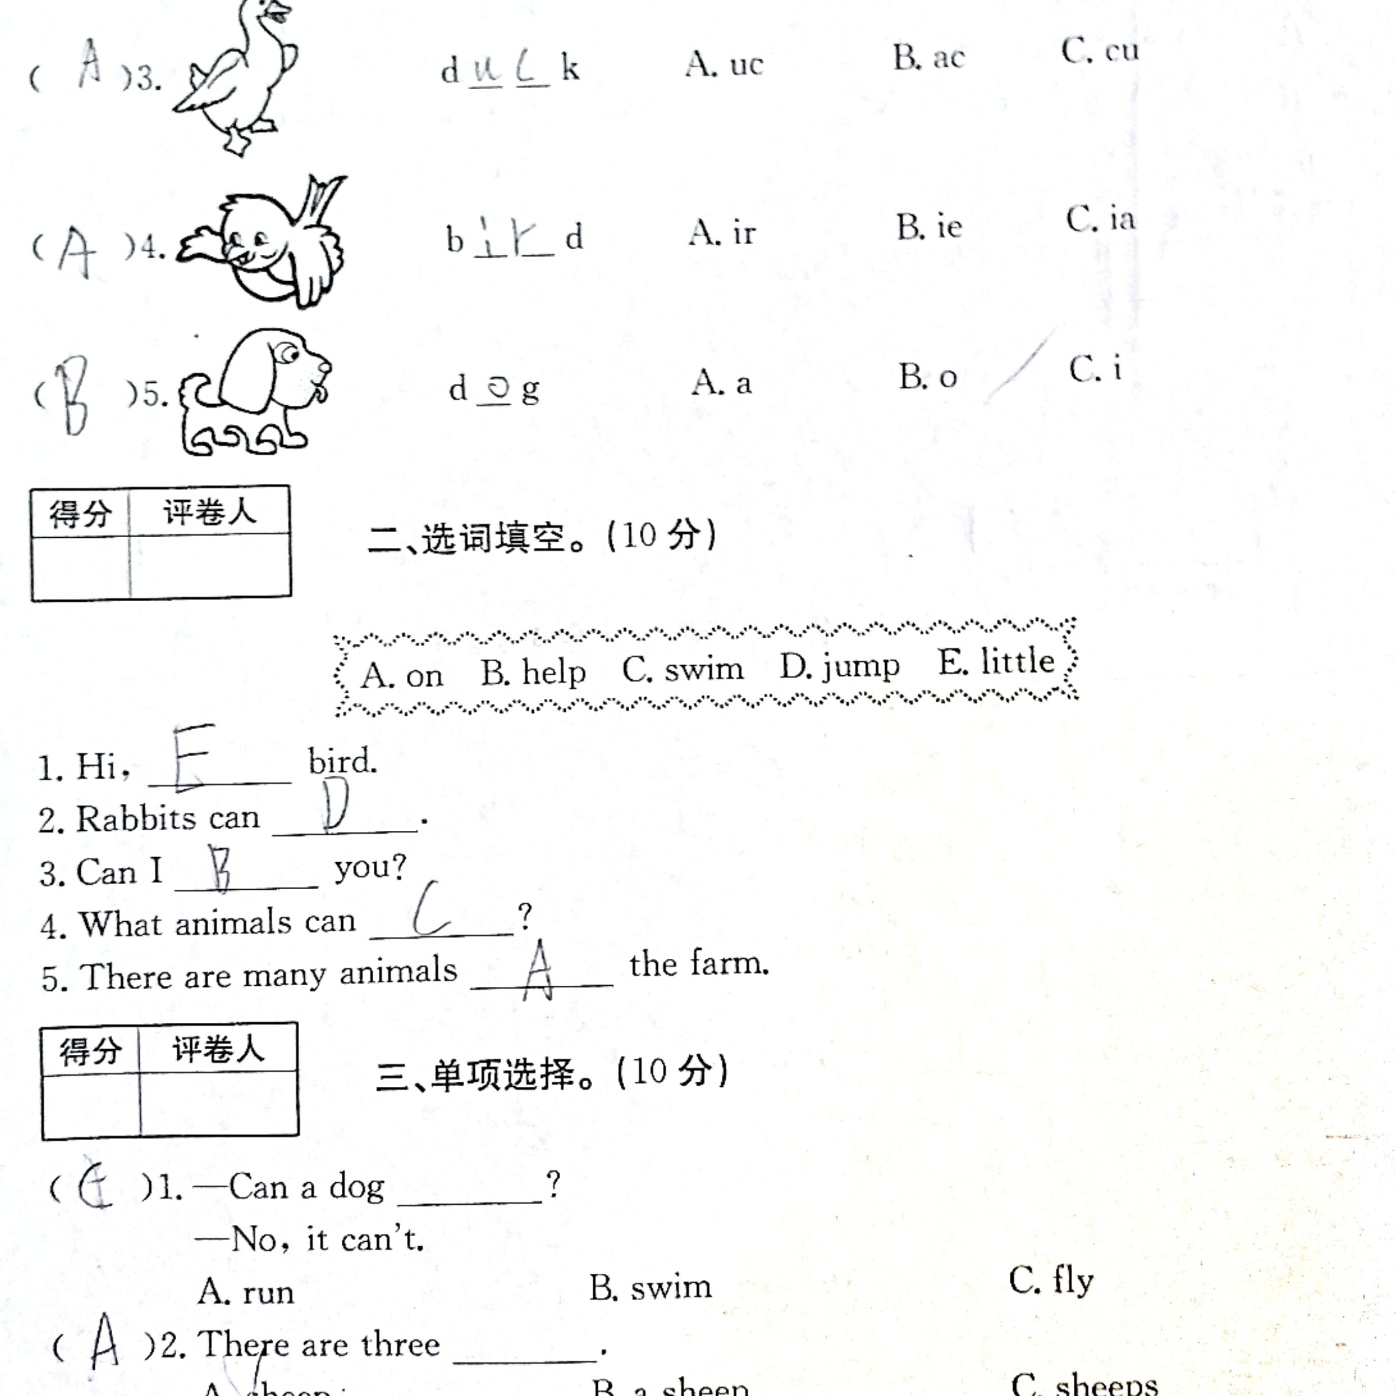 ( A )3. d u c k A. uc B. ac C. cu
( A )4. b i r d A. ir B. ie C. ia
( B )5. d o g A. a B. o C. i
得分 评卷人
二、选词填空。(10 分)
A. on B. help C. swim D. jump E. little
1. Hi, E bird.
2. Rabbits can D .
3. Can I B you?
4. What animals can C ?
5. There are many animals A the farm.
得分 评卷人
三、单项选择。(10 分)
( C )1. —Can a dog ________?
—No, it can't.
A. run B. swim C. fly
( A )2. There are three ________.
A. sheep B. a sheep C. sheeps